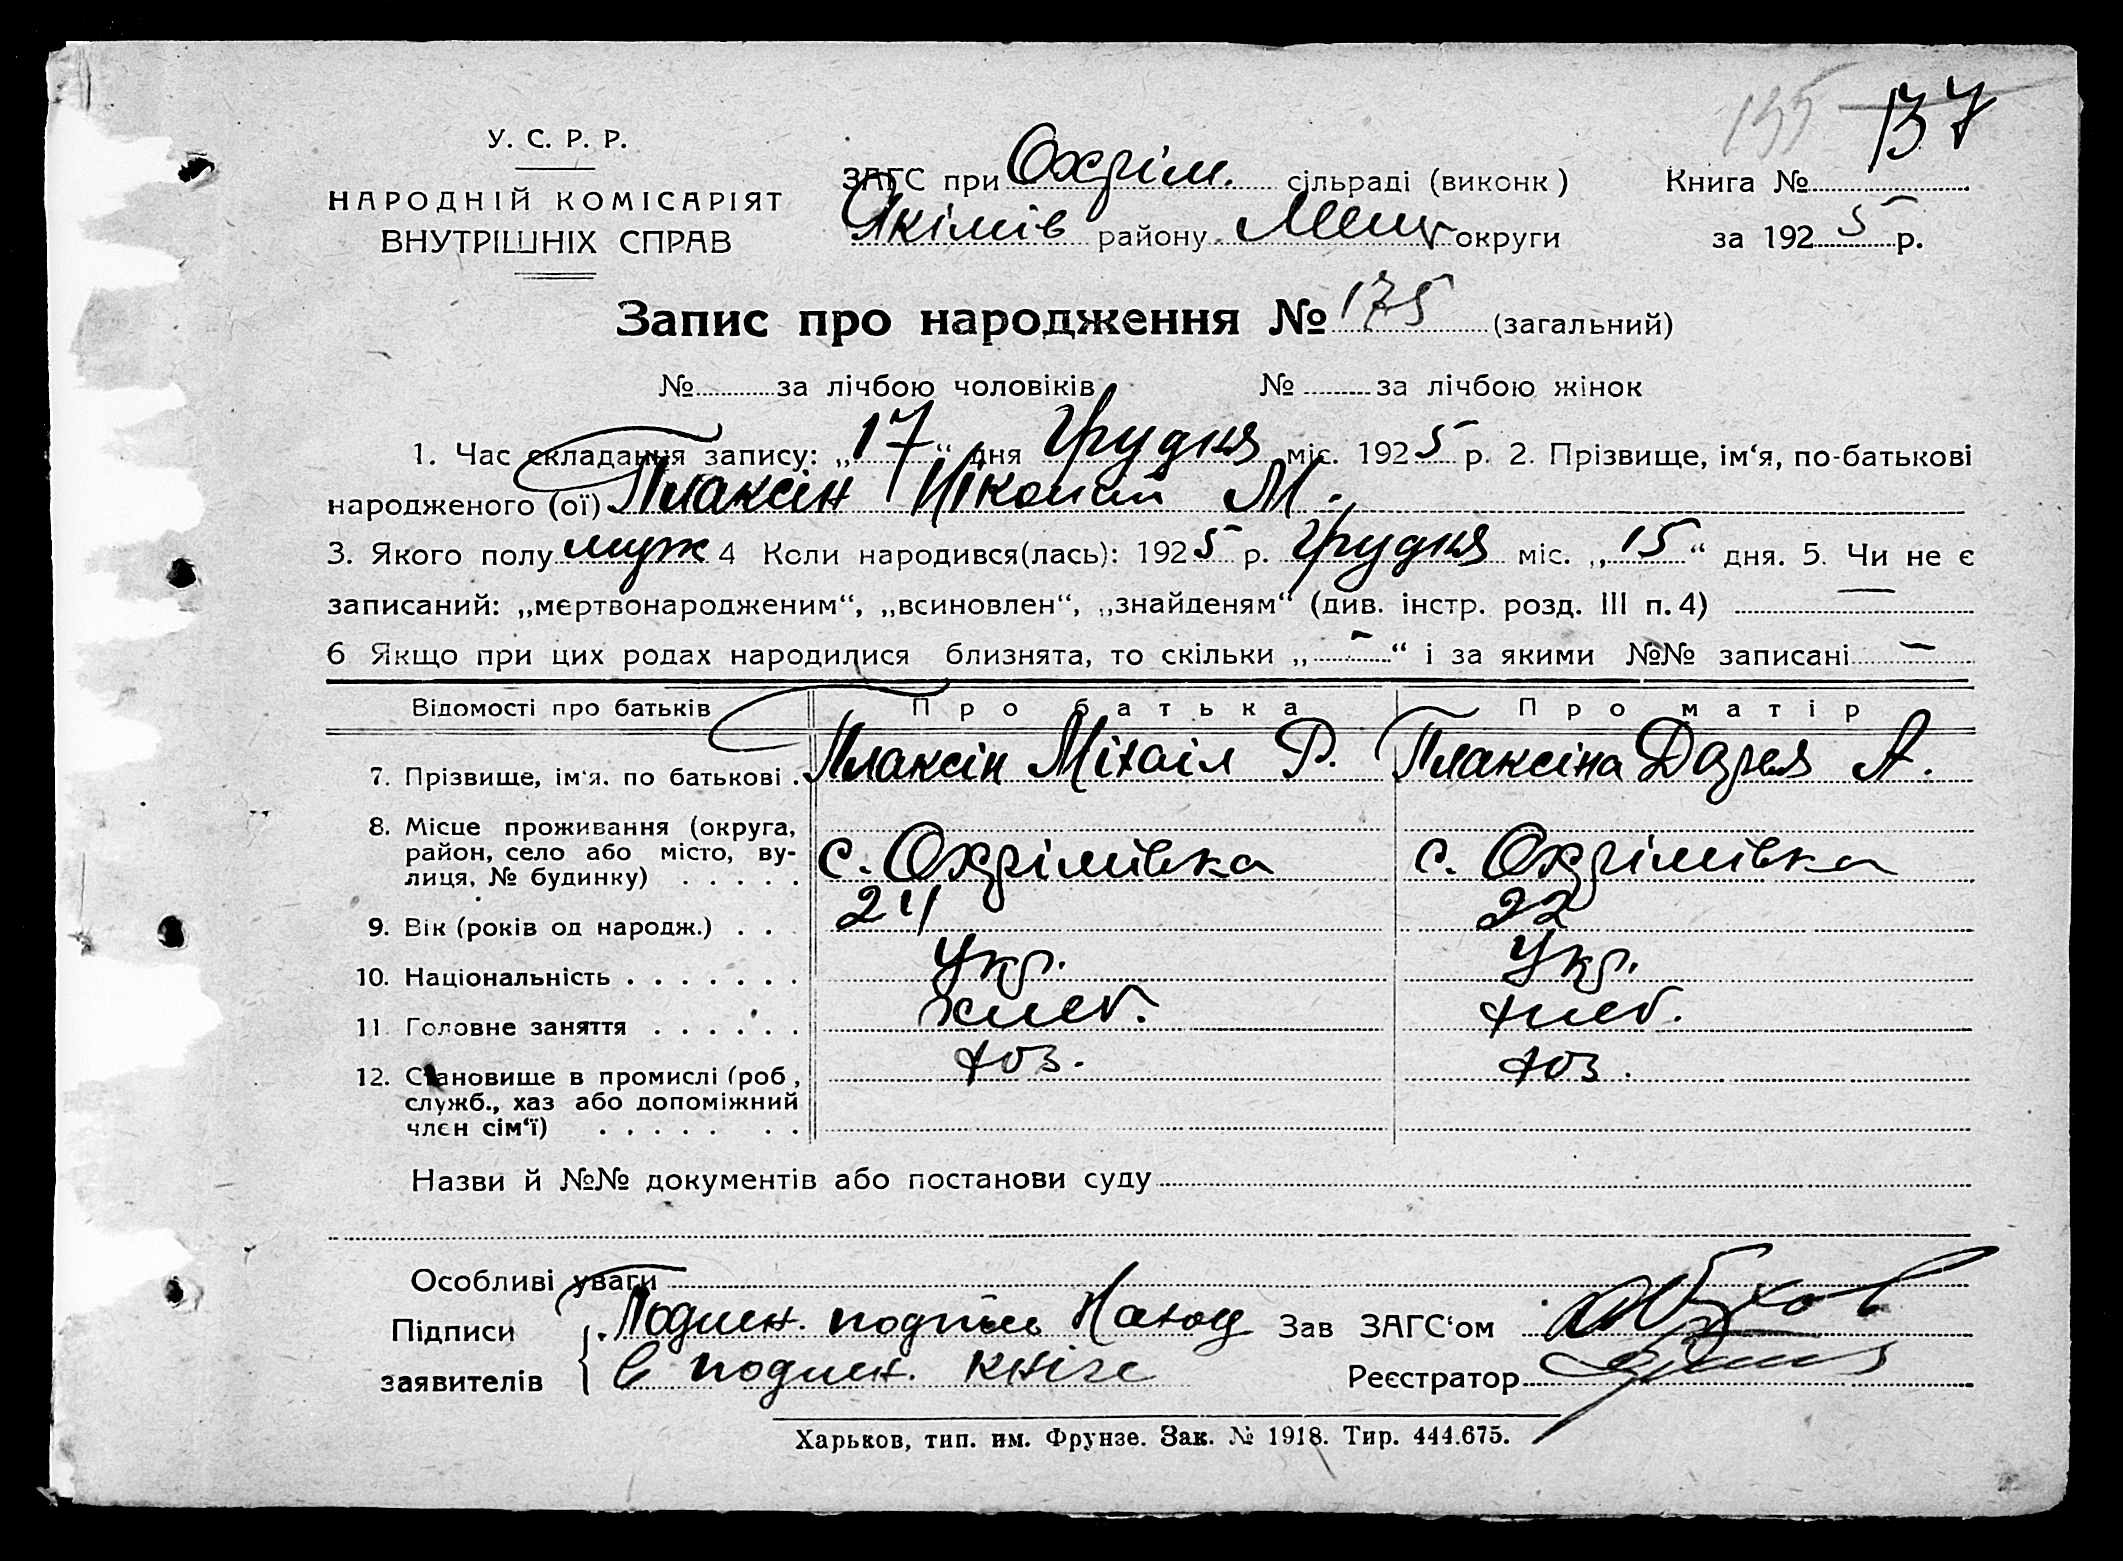 135 137
У. С. Р. Р.
НАРОДНІЙ КОМІСАРІЯТ
ВНУТРІШНІХ СПРАВ
ЗАГС при Охрім. сільраді (виконк)
Книга №
Якімів району Меліт округи
за 1925 р.
Запис про народження № 175 (загальний)
№ за лічбою чоловіків № за лічбою жінок
1. Час складання запису: „17“ дня Грудня міс. 1925 р. 2. Прізвище, ім‘я, по-батькові
народженого (ої) Плаксін Ніколай М.
3. Якого полу муж 4 Коли народився(лась): 1925 р. Грудня міс. „15“ дня. 5. Чи не є
записаний: „мертвонародженим“, „всиновлен“, „знайденям“ (див. інстр. розд. III п. 4) —
6 Якщо при цих родах народилися близнята, то скільки „–“ і за якими №№ записані –
Відомості про батьків Про батька Про матір
7. Прізвище, ім‘я. по батькові . Плаксін Міхаіл Р. Плаксіна Дарея А.
8. Місце проживання (округа,
район, село або місто, ву-
лиця, № будинку) . . . . . с. Охрімівка с. Охрімівка
9. Вік (років од народж.) . . . 24 22
10. Національність . . . . . . . Укр. Укр.
11. Головне заняття . . . . . . хлеб. хлеб.
12. Становище в промислі (роб,
служб., хаз або допоміжний
член сім‘ї) . . . . . . . хоз. хоз.
Назви й №№ документів або постанови суду
Особливі уваги
Підписи
заявителів
Подлен. подпись Наход
в подлен. кніге
Зав ЗАГС‘ом
Реєстратор
Харьков, тип. им. Фрунзе. Зак. № 1918. Тир. 444.675.